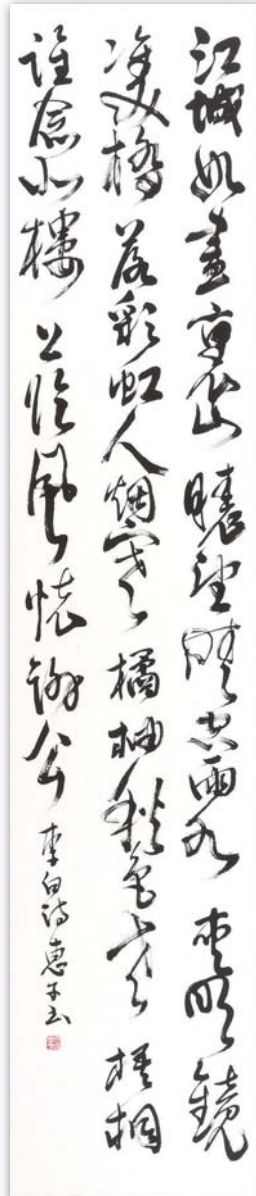 江城如畫裏山曉望晴空雨水夾明鏡
雙橋落彩虹人烟寒橘柚秋色老梧桐
誰念北樓上臨風懷謝公 李白詩惠子書